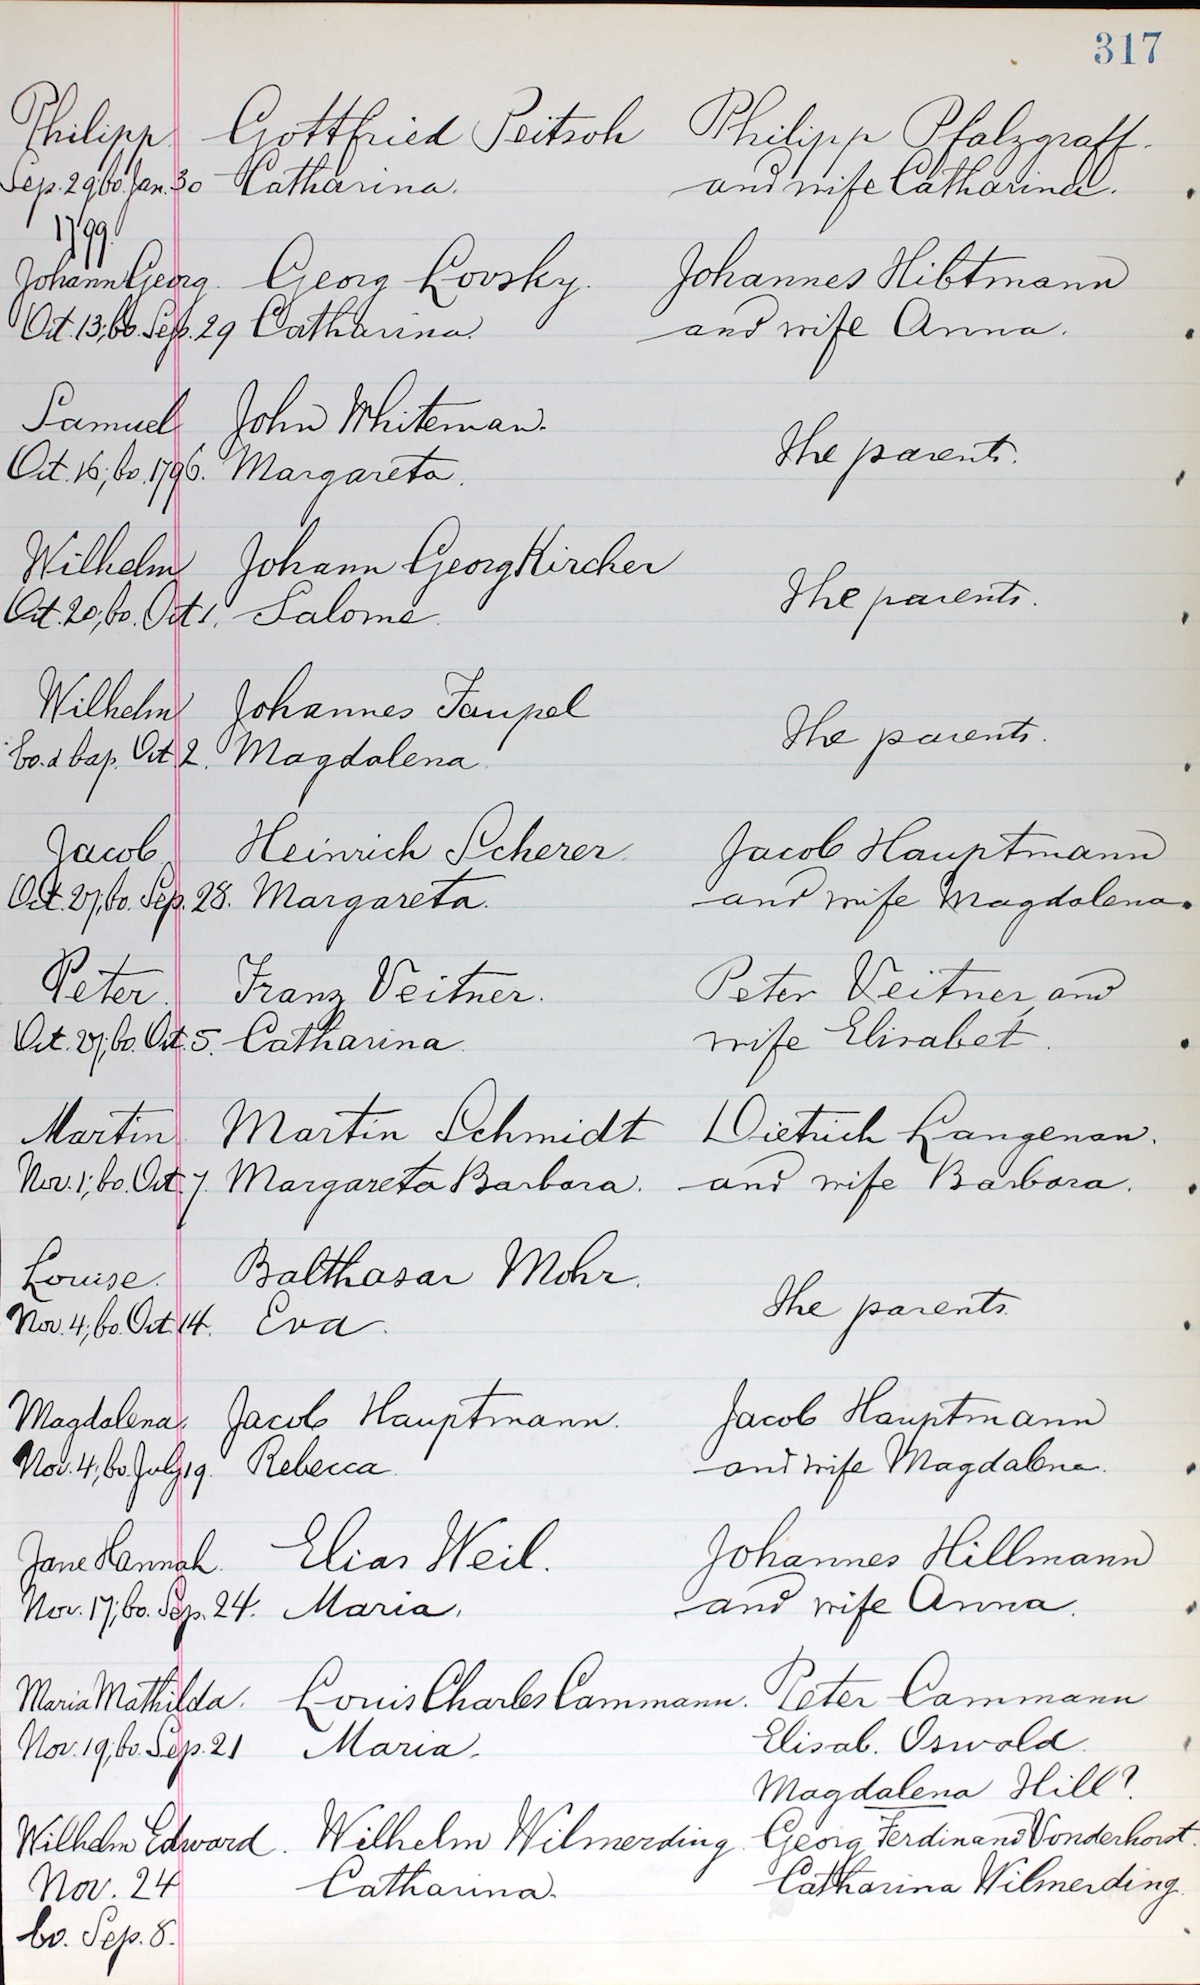 317
Philipp Gottfried Peitsch Philipp Pfalzgraff.
Sep. 29; bo. Jan. 30 Catharina. and wife Catharina.
1799.
Johann Georg. Georg Lovsky. Johannes Hibtmann
Oct. 13; bo. Sep. 29 Catharina. and wife Anna.
Samuel John Whiteman.
The parents.
Oct. 16; bo. 1796. Margareta.
Wilhelm Johann Georg Kircher
The parents.
Oct. 20; bo. Oct 1. Salome.
Wilhelm Johannes Faupel
The parents.
bo. & bap. Oct. 2. Magdalena.
Jacob Heinrich Scherer. Jacob Hauptmann
Oct. 27; bo. Sep. 28. Margareta. and wife Magdalena.
Peter. Franz Veitner. Peter Veitner and
Oct. 27; bo. Oct. 5. Catharina. wife Elisabet.
Martin Martin Schmidt Dietrich Langenau.
Nov. 1; bo. Oct. 7. Margareta Barbara. and wife Barbara.
Louise. Balthasar Mohr.
The parents.
Nov. 4; bo. Oct. 14. Eva.
Magdalena. Jacob Hauptmann. Jacob Hauptmann
Nov. 4; bo. July 19. Rebecca. and wife Magdalena.
Jane Hannah. Elias Weil. Johannes Hillmann
Nov. 17; bo. Sep. 24. Maria. and wife Anna.
Maria Mathilda. Louis Charles Cammann. Peter Cammann
Nov. 19; bo. Sep. 21 Maria. Elisab. Oswald.
Magdalena Hill?
Wilhelm Edward. Wilhelm Wilmerding. Georg Ferdinand Vonderhorst.
Nov. 24 Catharina. Catharina Wilmerding.
bo. Sep. 8.